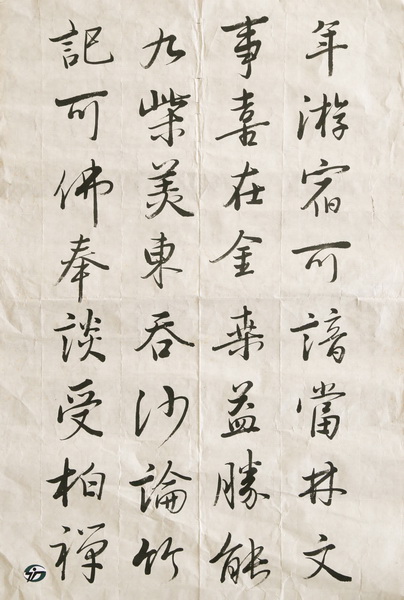 年游宿可諳當林文
事喜在金益勝能
九柴美東吞沙論竹
記可佛奉談受柏禪